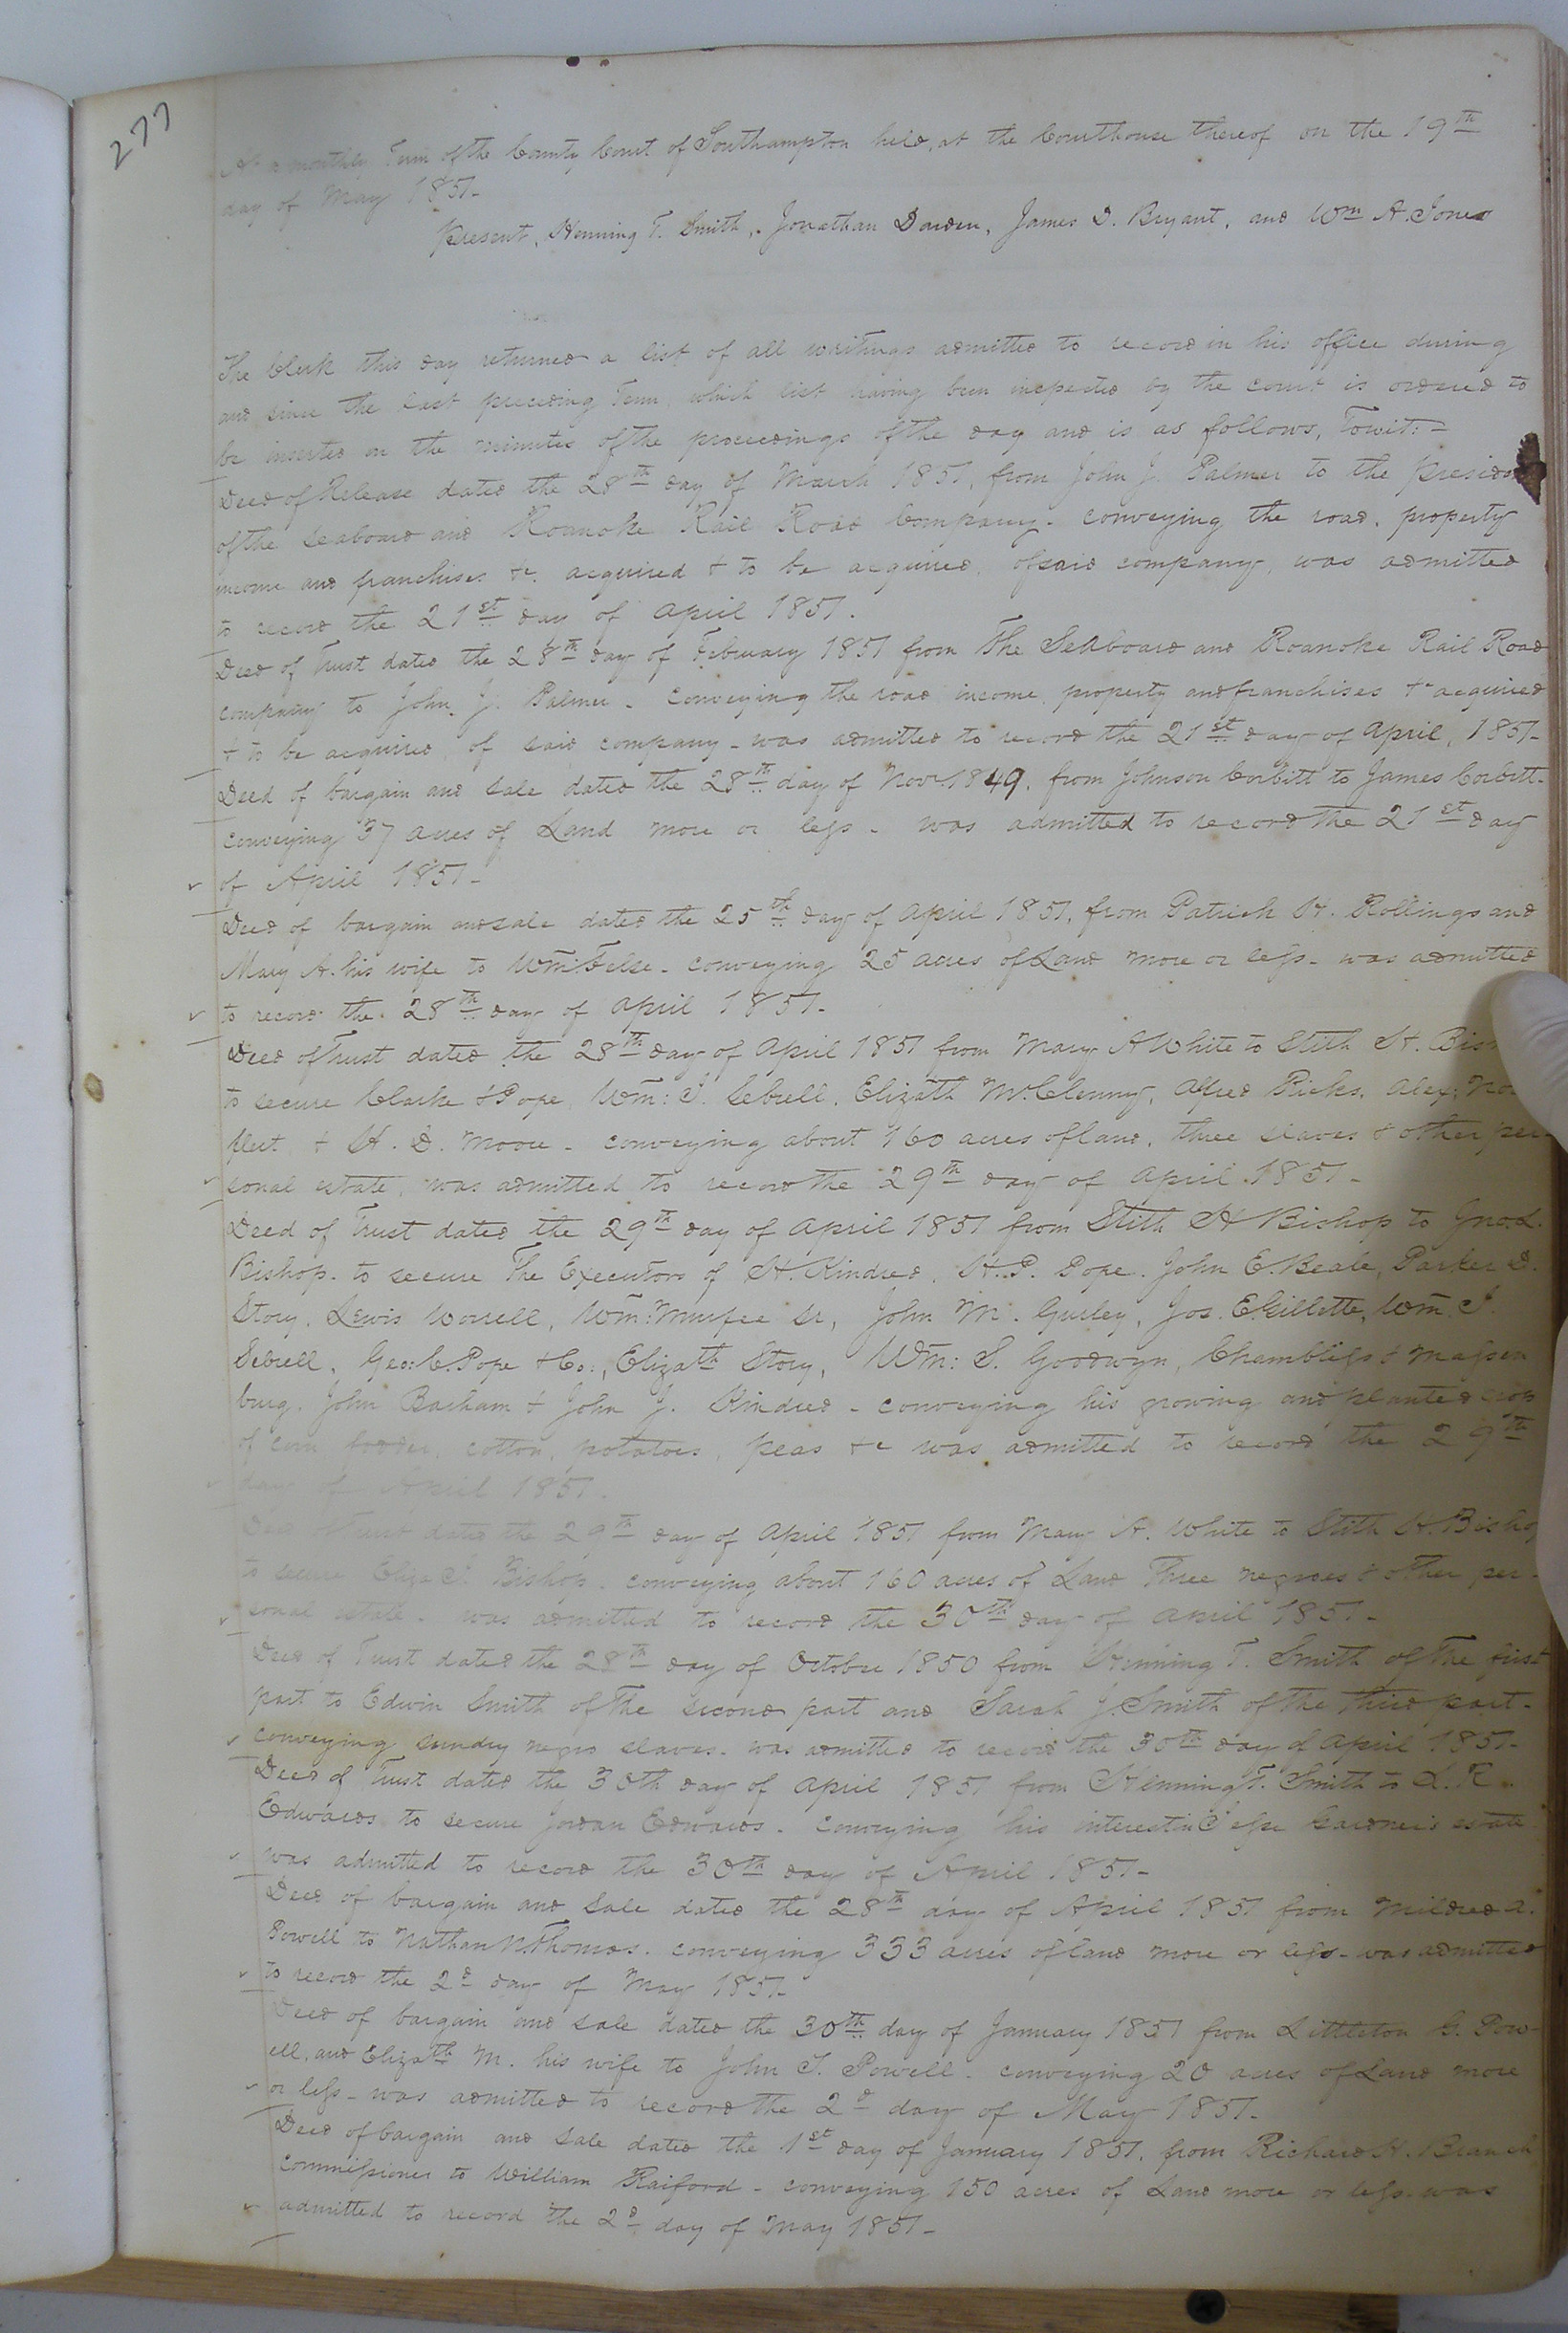 277
At a monthly Term of the County Court of Southampton held, at the Courthouse thereof on the 19th
day of May 1851-
Present, Henning T. Smith, Jonathan Darden, James D. Bryant, and Wm A. Jones
The Clerk this day returned a list of all writings admitted to record in his office during
and since the last preceding Term, which list having been inspected by the court is ordered to
be inserted on the minutes of the proceedings of the day and is as follows, Towit:-
Deed of Release dated the 28th day of March 1851, from John J. Palmer to the President
of the Seaboard and Roanoke Rail Road Company. conveying the road, property
income and franchises &c. acquired & to be acquired, of said company, was admitted
to record the 21st day of April 1851.
Deed of Trust dated the 28th day of February 1851 from The Seaboard and Roanoke Rail Road
company to John J. Palmer - conveying the road income, property and franchises &c acquired
& to be acquired, of said company - was admitted to record the 21st day of April, 1851-
Deed of bargain and sale dated the 28th day of Novr. 1849, from Johnson Corbitt to James Corbitt-
conveying 37 acres of Land more or less - was admitted to record the 21st day
of April 1851-
Deed of bargain and sale dated the 25th day of April 1851, from Patrick H. Rollings and
Mary A. his wife to Wm: Felse - conveying 25 acres of Land more or less - was admitted
to record the 28th day of April 1851-
Deed of Trust dated the 28th day of April 1851 from Mary A White to Stith H. Bis
to secure Clarke & Pope, Wm: J. Sebrell, Elizath McClenny, Alfred Ricks, Alex: Nor
fleet & H. D. Moore - conveying about 160 acres of land, three slaves & other per-
sonal estate, was admitted to record the 29th day of April 1851-
Deed of Trust dated the 29th day of April 1851 from Stith H Bishop to Jno. L.
Bishop. to secure The Executors of H. Kindred, H. P. Pope, John E. Beale, Parker D.
Story, Lewis Worrell, Wm: Murfee Sr, John M. Gurley, Jos. E. Gillette, Wm J.
Sebrell, Geo: C. Pope & Co:, Elizath Story, Wm: S. Goodwyn, Chambliss & Massen
burg. John Barham & John J. Kindred - conveying his growing and planted crop
of corn fodder, cotton, potatoes, peas &c was admitted to record the 29th
day of April 1851.
Deed of Trust dated the 29th day of April 1851 from Mary A. White to Stith H. Bishop
to secure Eliza J. Bishop. conveying about 160 acres of Land Three negroes & other per-
sonal estate. was admitted to record the 30th day of April 1851-
Deed of Trust dated the 28th day of October 1850 from Henning T. Smith of the first
part to Edwin Smith of the second part and Sarah J. Smith of the third part-
conveying sundry negro slaves. was admitted to record the 30th day of April 1851-
Deed of Trust dated the 30th day of April 1851 from Henning T. Smith to L. R.
Edwards to secure Jordan Edwards. conveying his interest in Gardner's estate
was admitted to record the 30th day of April 1851-
Deed of bargain and sale dated the 28th day of April 1851 from Mildred A.
Powell to Nathan Thomas. conveying 333 acres of land more or less - was admitted
to record the 2d day of May 1851-
Deed of bargain and sale dated the 30th day of January 1851 from Littleton G. Pow-
ell, and Elizath M. his wife to John T. Powell - conveying 20 acres of Land more
or less - was admitted to record the 2d day of May 1851-
Deed of bargain and sale dated the 1st day of January 1851, from Richard H. Branch
commissioner to William Raiford - conveying 150 acres of Land more or less. was
admitted to record the 2d day of May 1851-